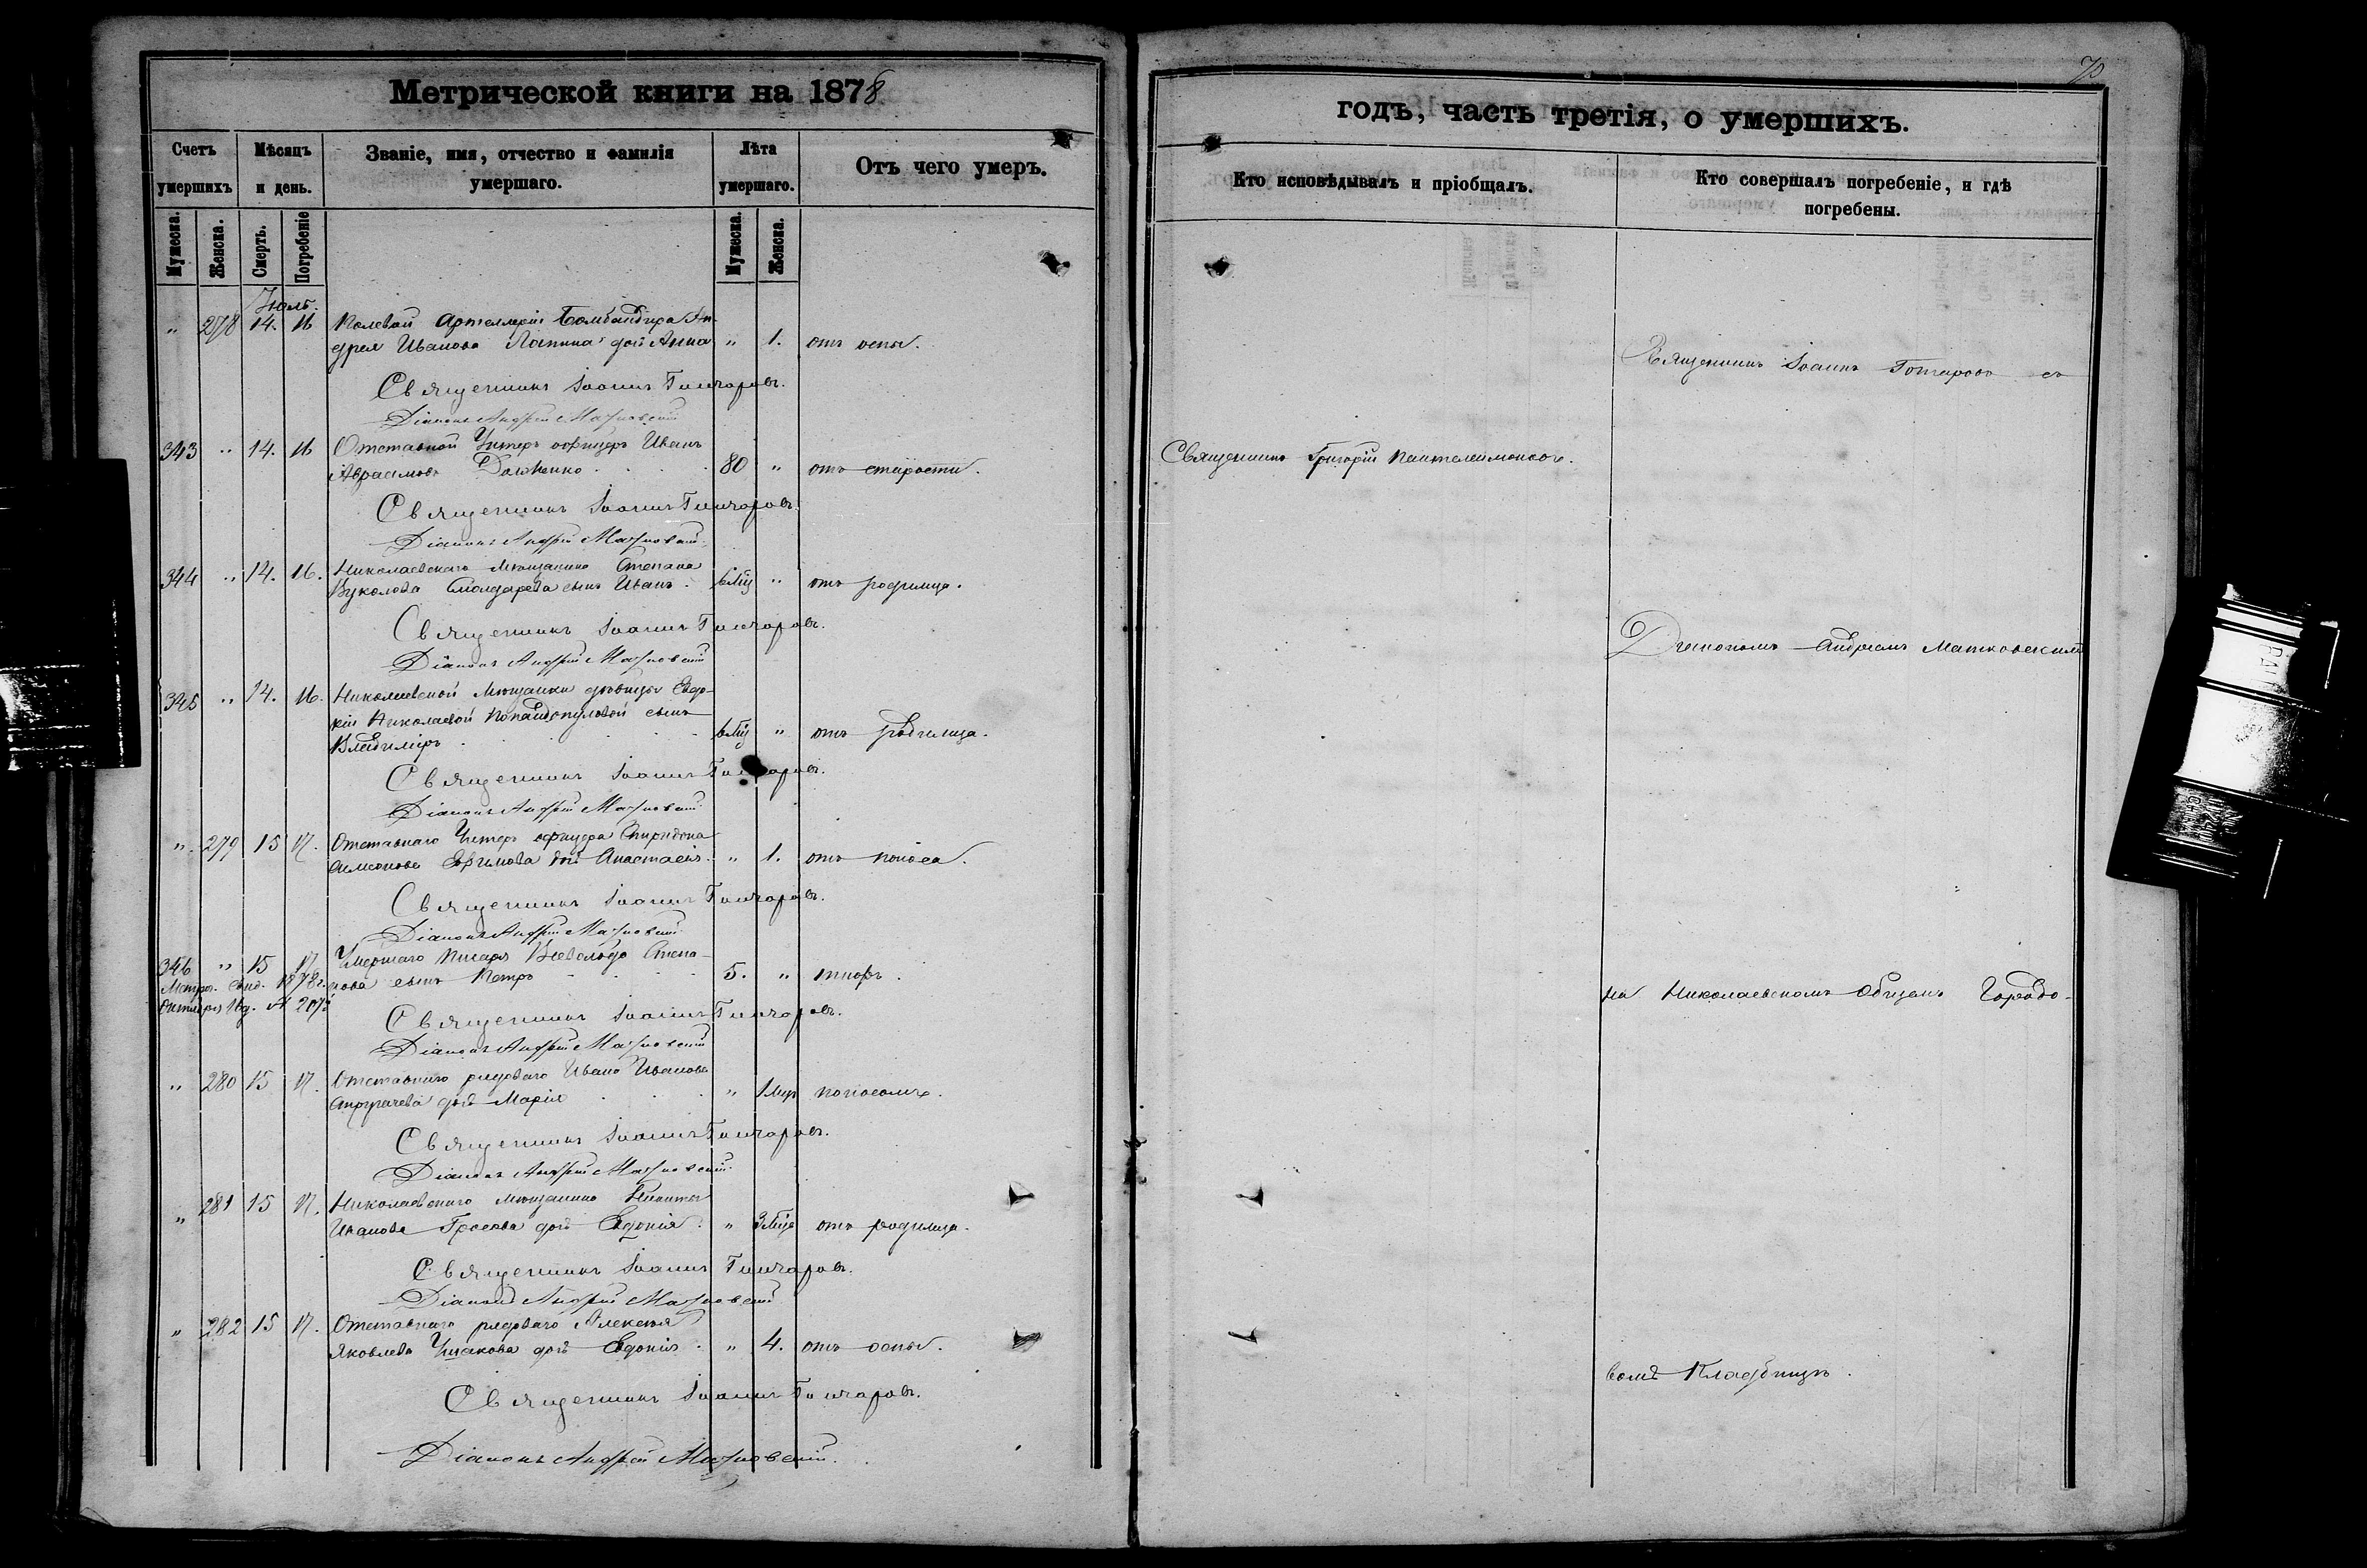 Метрической книги на 1878
Счетъ умершихъ
Мѣсяцъ и день.
Званіе, имя, отчество и фамилія умершаго.
Лѣта умершаго.
Отъ чего умеръ.
Мужеска.
Женска.
Смерть.
Погребеніе
Мужеска.
Женска.
Іюль.
" 278 14. 16 Полевой Артеллеріи Бомбандира Ан-
дрея Иванова Лапина дочь Анна " 1. отъ оспы.
Священникъ Іоаннъ Гончаровъ.
Діаконъ Андрей Матковскій
343 " 14. 16 Отставной Унтеръ офицеръ Иванъ
Аврамовъ Долженко 80 " отъ старости.
Священникъ Іоаннъ Гончаровъ.
Діаконъ Андрей Матковскій.
344 " 14. 16. Николаевскаго мѣщанина Степана
Вуколова сынъ Иванъ. 6 мц " отъ родимца.
Священникъ Іоаннъ Гончаровъ.
Діаконъ Андрей Матковскій
345 " 14. 16. Николаевской мѣщанки дѣвицы Евдо-
кіи Николаевой Попандопуловой сынъ
Владиміръ 6 мц " отъ родимца.
Священникъ Іоаннъ Гончаровъ.
Діаконъ Андрей Матковскій
" 279 15 17. Отставнаго Унтеръ офицера Спиридона
Ефимова дочь Анастасія. " 1. отъ поноса.
Священникъ Іоаннъ Гончаровъ.
Діаконъ Андрей Матковскій
346 " 15 17 Умершаго Писаря Всеволода Степа-
нова сынъ Петръ 5. " тифъ.
Метрич. свид. 1878 г.
Октября 16 д. №
Священникъ Іоаннъ Гончаровъ.
Діаконъ Андрей Матковскій
" 280 15 17. Отставнаго рядоваго Ивана Иванова
дочь Марія " 1 мц поносомъ.
Священникъ Іоаннъ Гончаровъ.
Діаконъ Андрей Матковскій
" 281 15 17. Николаевскаго мѣщанина Никиты
Иванова дочь Евдокія. " 3 мца отъ родимца.
Священникъ Іоаннъ Гончаровъ.
Діаконъ Андрей Матковскій
" 282 15 17. Отставнаго рядоваго Алексѣя
Яковлева Ушакова дочь Евдокія. " 4. отъ оспы.
Священникъ Іоаннъ Гончаровъ.
Діаконъ Андрей Матковскій.
70
годъ, часть третія, о умершихъ.
Кто исповѣдывалъ и пріобщалъ.
Кто совершалъ погребеніе, и гдѣ погребены.
Священникъ Іоаннъ Гончаровъ съ
Священникъ Григорій Пантелеймоновъ.
Діакономъ Андреемъ Матковскимъ
на Николаевскомъ общемъ Городо-
вомъ Кладбищѣ.